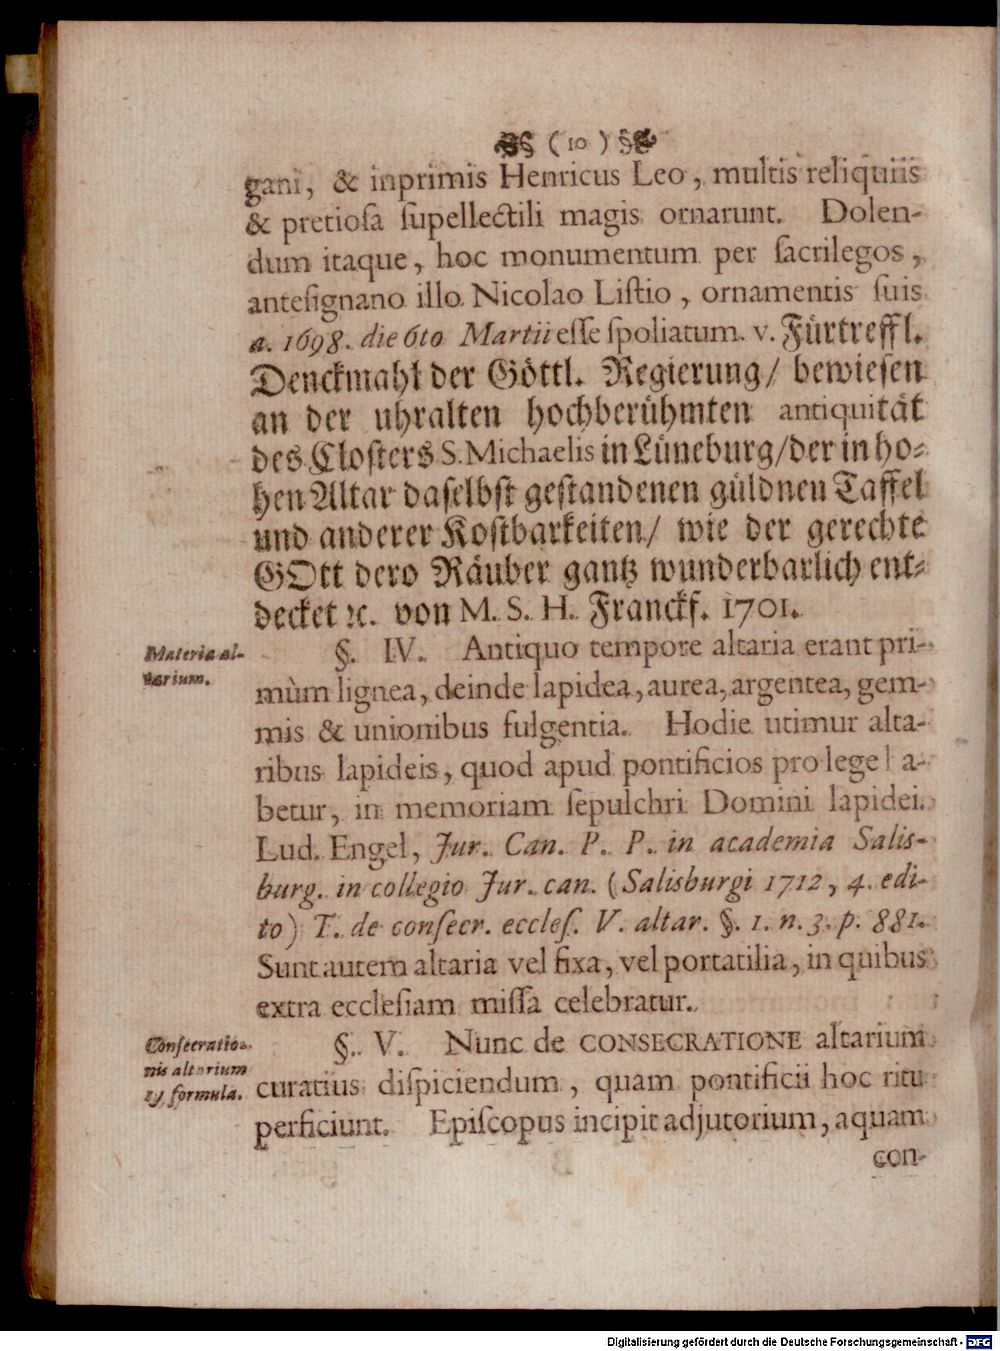 ( 10 )
gani, & inprimis Henricus Leo, multis reliquiis
& pretioſa ſupellectili magis ornarunt. Dolen-
dum itaque, hoc monumentum per ſacrilegos,
anteſignano illo Nicolao Liſtio, ornamentis ſuis
a. 1698. die 6to Martii eſſe ſpoliatum. v. Fürtreffl.
Denckmahl der Göttl. Regierung/ bewieſen
an der uhralten hochberühmten antiquität
des Cloſters S. Michaelis in Lüneburg/ der in ho-
hen Altar daſelbſt geſtandenen güldnen Taffel
und anderer Koſtbarkeiten/ wie der gerechte
GOtt dero Räuber gantz wunderbarlich ent-
decket ꝛc. von M. S. H. Franckf. 1701.
Materia al-
tarium.
§. IV. Antiquo tempore altaria erant pri-
mùm lignea, deinde lapidea, aurea, argentea, gem-
mis & unionibus fulgentia. Hodie utimur alta-
ribus lapideis, quod apud pontificios pro lege a-
betur, in memoriam ſepulchri Domini lapidei.
Lud. Engel, Jur. Can. P. P. in academia Salis-
burg. in collegio Jur. can. (Salisburgi 1712, 4. edi-
to) T. de conſecr. eccleſ. V. altar. §. 1. n. 3. p. 881.
Sunt autem altaria vel fixa, vel portatilia, in quibus
extra eccleſiam miſſa celebratur.
Conſecratio-
nis altarium
ej. formula.
§. V. Nunc de CONSECRATIONE altarium
curatius diſpiciendum, quam pontificii hoc ritu
perficiunt. Epiſcopus incipit adjutorium, aquam
con-
Digitalisierung gefördert durch die Deutsche Forschungsgemeinschaft - DFG